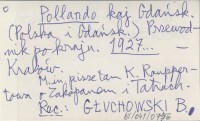 Pollando kaj Gdańsk.
(Polska i Gdańsk.) Przewod-
nik po kraju. 1927... —
Kraków.
M.in. pisze tam K. Rauppertowa
o Zakopanem i Tatrach.
Rec.: GŁUCHOWSKI B.